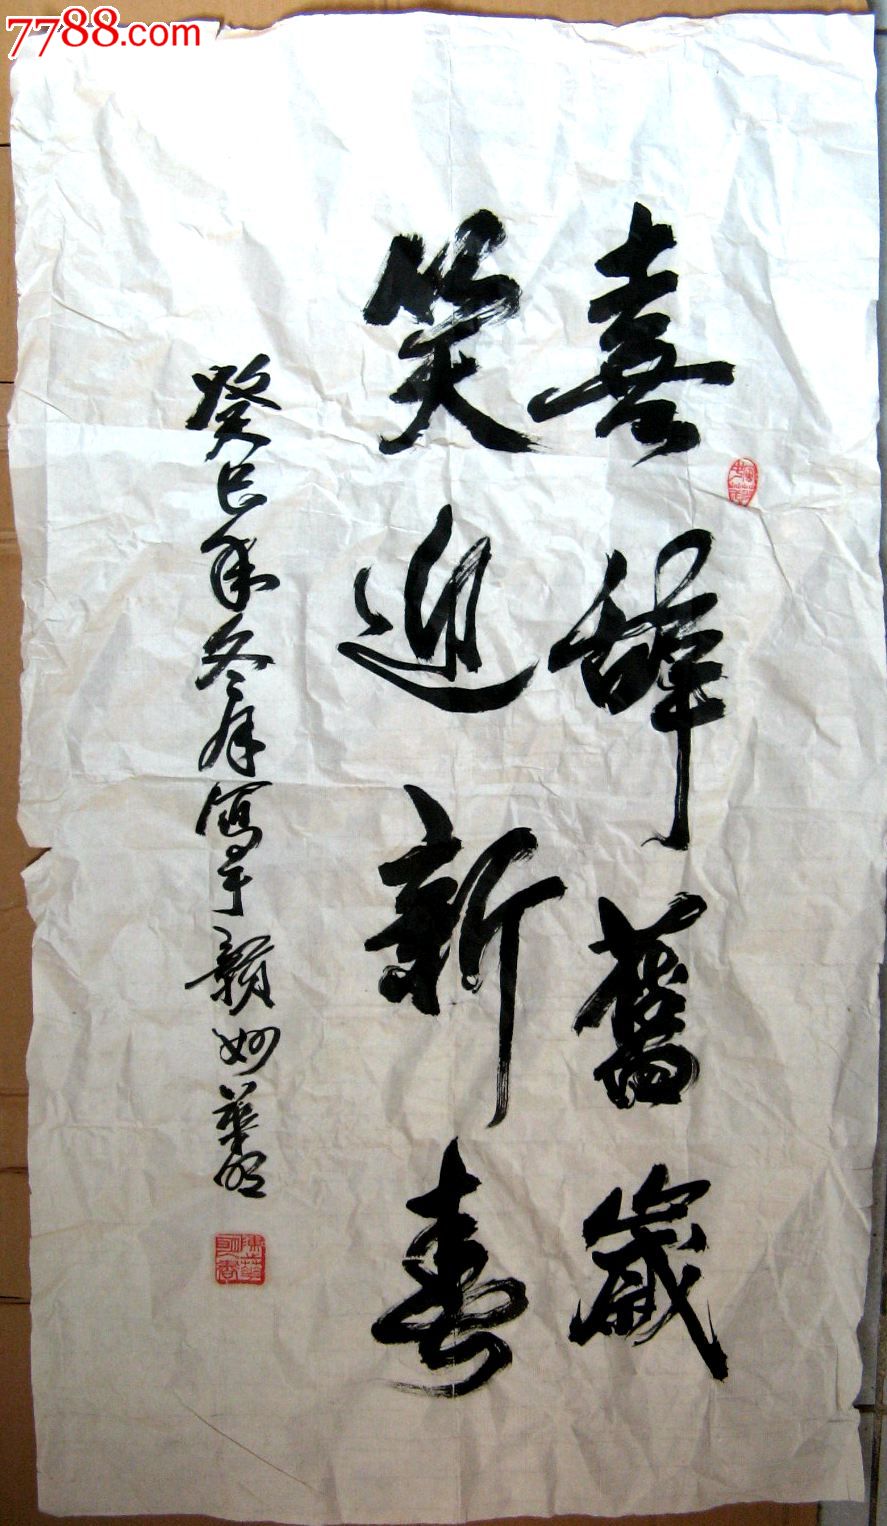 7788.com
喜辞舊歲
笑迎新春
癸巳年冬月寫于穎妙華明